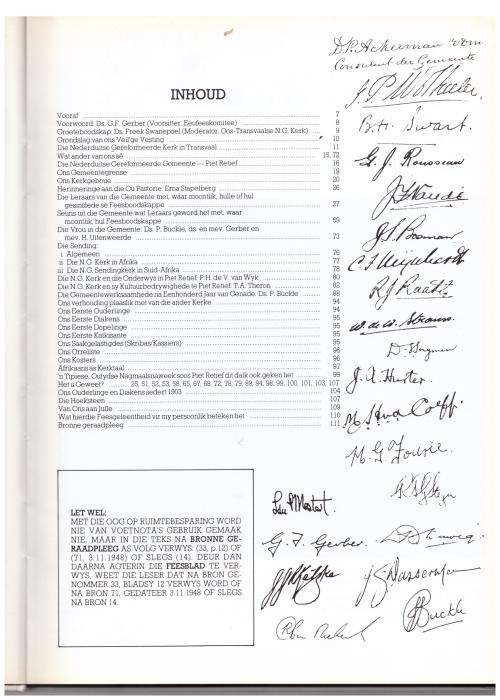 INHOUD
Vooraf 7
Voorwoord: Ds. G.F. Gerber (Voorsitter, Eeufeeskomitee) 8
Groeteboodskap: Ds. Freek Swanepoel (Moderator, Oos-Transvaalse N.G. Kerk) 9
Grondslag van ons Veilige Vesting 10
Die Nederduitse Gereformeerde Kerk in Transvaal 11
Wat ander van ons sê 15, 72
Die Nederduitse Gereformeerde Gemeente — Piet Retief 16
Ons Gemeentegrense 19
Ons Kerkgeboue 20
Herinneringe aan die Ou Pastorie: Erna Stapelberg 26
Die Leraars van die Gemeente met, waar moontlik, hulle of hul
gesinslede se Feesboodskappe 27
Seuns uit die Gemeente wat Leraars geword het met, waar
moontlik, hul Feesboodskappe 69
Die Vrou in die Gemeente: Ds. P. Buckle, ds. en mev. Gerber en
mev. H. Uitenweerde 73
Die Sending:
i Algemeen 76
ii Die N.G. Kerk in Afrika 77
iii Die N.G. Sendingkerk in Suid-Afrika 78
Die N.G. Kerk en die Onderwys in Piet Retief: P.H. de V. van Wyk 80
Die N.G. Kerk en sy Kultuurbedrywighede te Piet Retief: T.A. Theron 82
Die Gemeentewerksaamhede na Eenhonderd Jaar van Genade: Ds. P. Buckle 88
Ons verhouding plaaslik met van die ander Kerke 94
Ons Eerste Ouderlinge 94
Ons Eerste Diakens 95
Ons Eerste Dopelinge 95
Ons Eerste Katkisante 95
Ons Saakgelastigdes (Skribas/Kassiers) 95
Ons Orreliste 96
Ons Kosters 96
Afrikaans as Kerktaal 97
'n Tipiese, Outydse Nagmaalsnaweek soos Piet Retief dit dalk ook geken het 99
Het u Geweet? 25, 51, 52, 53, 58, 65, 67, 68, 72, 78, 79, 89, 94, 98, 99, 100, 101, 103, 107
Ons Ouderlinge en Diakens sedert 1903 104
Die Hoeksteen 107
Van Ons aan Julle 109
Wat hierdie Feesgeleentheid vir my persoonlik beteken het 110
Bronne geraadpleeg 111
D.P. Ackerman
Consulent der Gemeente
B.H. Swart
G. J. Rousseau
J. Naudé
J. S. Bosman
R J Raath
W. de W. Strauss
J. A. Hurter
M. G. Fourie
G. F. Gerber
J S Wasserman
P Buckle
LET WEL:
MET DIE OOG OP RUIMTEBESPARING WORD
NIE VAN VOETNOTA'S GEBRUIK GEMAAK
NIE, MAAR IN DIE TEKS NA BRONNE GE-
RAADPLEEG AS VOLG VERWYS: (33, p.12) OF
(71, 3.11.1948) OF SLEGS (14). DEUR DAN
DAARNA AGTERIN DIE FEESBLAD TE VER-
WYS, WEET DIE LESER DAT NA BRON GE-
NOMMER 33, BLADSY 12 VERWYS WORD OF
NA BRON 71, GEDATEER 3.11.1948 OF SLEGS
NA BRON 14.